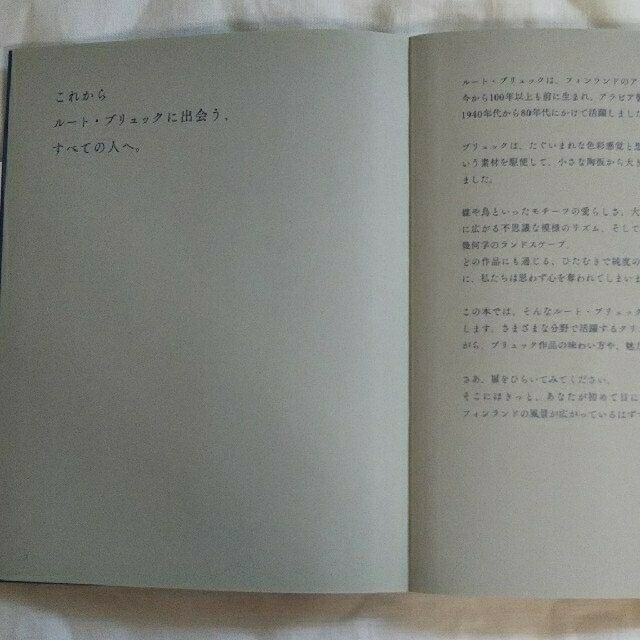 これから
ルート・ブリュックに出会う、
すべての人へ。
ルート・ブリュックは、フィンランドのア
今から100年以上も前に生まれ、アラビア
1940年代から80年代にかけて活躍しました
ブリュックは、たぐいまれな色彩感覚と
いう素材を駆使して、小さな陶板から大
ました。
蝶や鳥といったモチーフの愛らしさ、大
に広がる不思議な模様のリズム、そして
幾何学のランドスケープ。
どの作品にも通じる、ひたむきで純度の
に、私たちは思わず心を奪われてしまいま
この本では、そんなルート・ブリュック
します。さまざまな分野で活躍するクリ
がら、ブリュック作品の味わい方や、魅
さあ、扉をひらいてみてください。
そこにはきっと、あなたが初めて目に
フィンランドの風景が広がっているはず